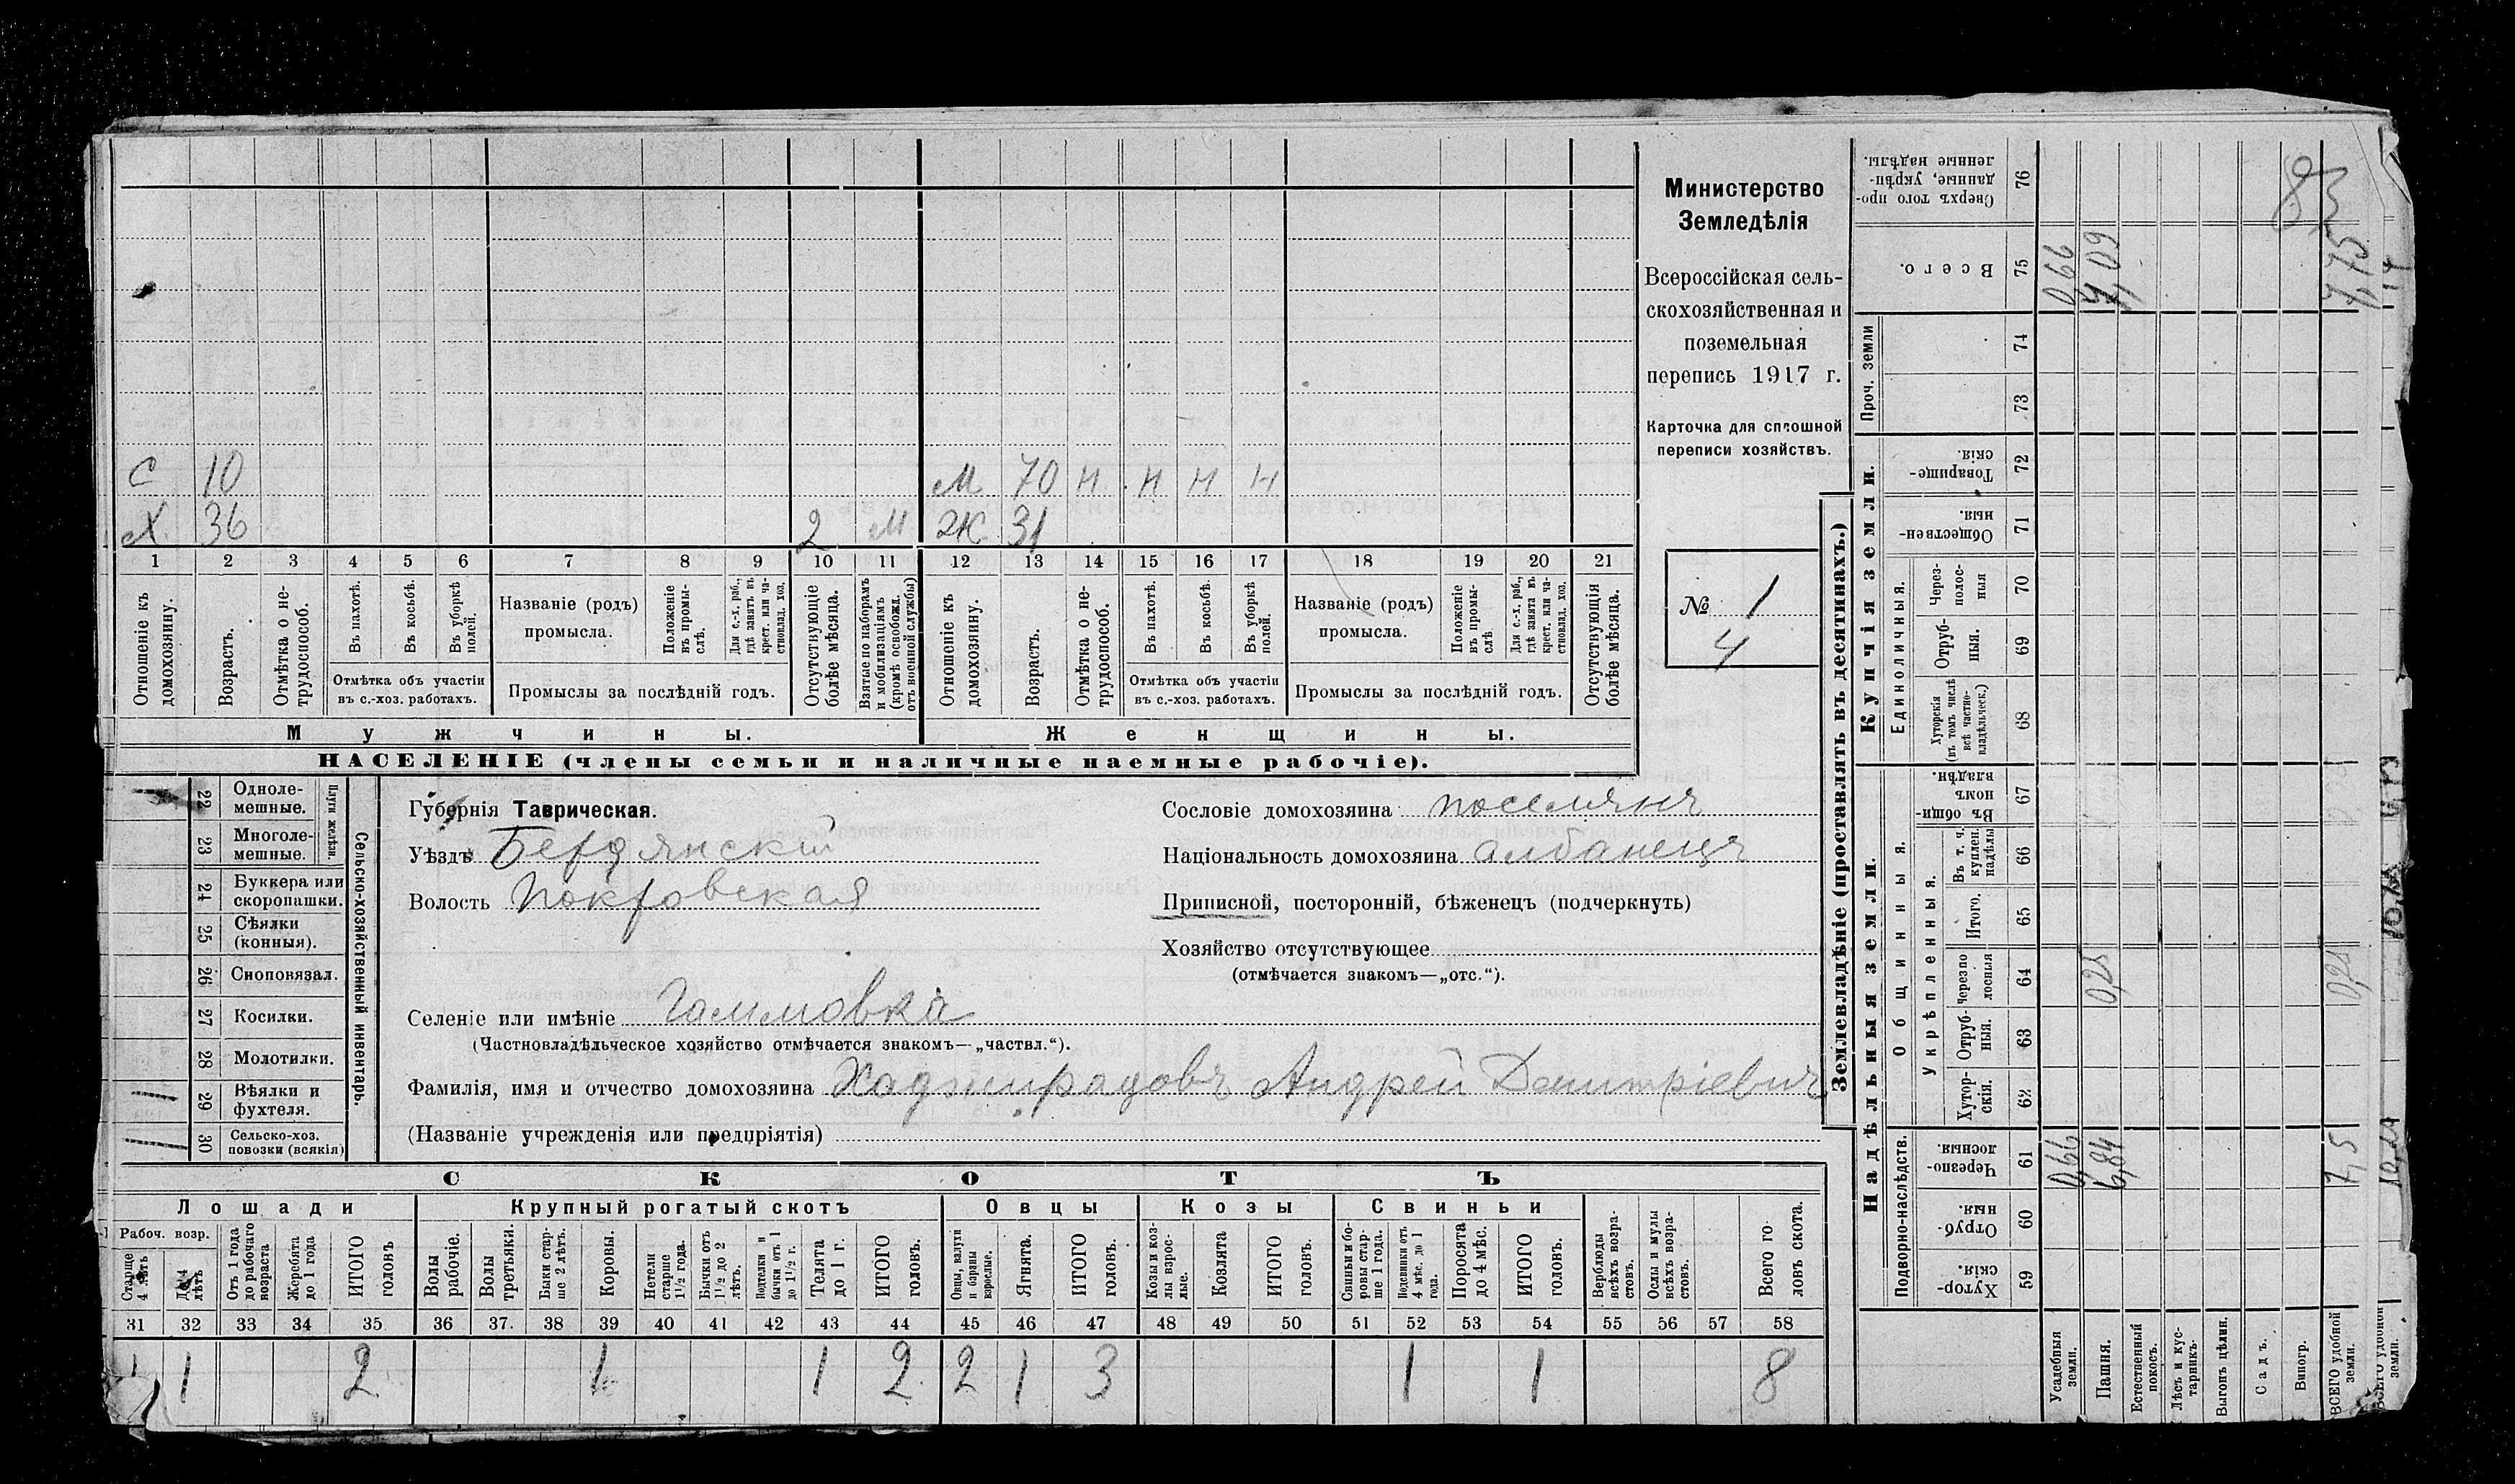 С 10 М 70 Н Н Н Н
Х 36 2 М Ж 31
1 2 3 4 5 6 7 8 9 10 11 12 13 14 15 16 17 18 19 20 21
Отношеніе къ домохозяину.
Возрастъ.
Отмѣтка о не-
трудоспособ.
Въ пахотѣ.
Въ косьбѣ.
Въ уборкѣ
полей.
Отмѣтка объ участіи
въ с.-хоз. работахъ.
Названіе (родъ)
промысла.
Положеніе
въ промы-
слѣ.
Для с.-х. раб.,
гдѣ занятъ въ
крест. или ча-
стновлад. хоз.
Промыслы за послѣдній годъ.
Отсутствующіе
болѣе мѣсяца.
Взятые по наборамъ
и мобилизаціямъ
(кромѣ освобожд.
отъ военной службы)
Отношеніе къ
домохозяину.
Возрастъ.
Отмѣтка о не-
трудоспособ.
Въ пахотѣ.
Въ косьбѣ.
Въ уборкѣ
полей.
Отмѣтка объ участіи
въ с.-хоз. работахъ.
Названіе (родъ)
промысла.
Положеніе
въ промы-
слѣ
Для с.-х. раб.,
гдѣ занята въ
крест. или ча-
стновлад. хоз.
Промыслы за послѣдній годъ.
Отсутствующія
болѣе мѣсяца.
Мужчины.
Женщины.
НАСЕЛЕНІЕ (члены семьи и наличные наемные рабочіе).
Министерство
Земледѣлія
Всероссійская сель-
скохозяйственная и
поземельная
перепись 1917 г.
Карточка для сплошной
переписи хозяйствъ.
№ 1
4
22 Одноле-
мешные.
23 Многоле-
мешные.
Плуги желѣзн.
24 Буккера или
скоропашки.
25 Сѣялки
(конныя).
26 Сноповязал.
27 Косилки.
28 Молотилки.
29 Вѣялки и
фухтеля.
30 Сельско-хоз.
повозки (всякія)
Сельско-хозяйственный инвентарь.
Губернія Таврическая.
Уѣздъ Бердянскій
Волость Покровская
Сословіе домохозяина поселянъ
Національность домохозяина албанецъ
Приписной, посторонній, бѣженецъ (подчеркнуть)
Хозяйство отсутствующее
(отмѣчается знакомъ—„отс.“).
Селеніе или имѣніе Гаммовка
(Частновладѣльческое хозяйство отмѣчается знакомъ—„частвл.“).
Фамилія, имя и отчество домохозяина Хаджирадовъ Андрей Димитріевичъ
(Названіе учрежденія или предпріятія)
СКОТЪ
Лошади
Крупный рогатый скотъ
Овцы
Козы
Свиньи
Рабоч. возр.
Старше
4 лѣтъ
До 4
лѣтъ
Отъ 1 года
до рабочаго
возраста
Жеребята
до 1 года
ИТОГО
головъ
Волы
рабочіе.
Волы
третьяки.
Быки стар-
ше 2 лѣтъ.
Коровы.
Нетели
старше
1½ года.
Бычки отъ
1½ до 2
лѣтъ.
Подтелки и
бычки отъ 1
до 1½ г.
Телята
до 1 г.
ИТОГО
головъ.
Овцы, валухи
и бараны
взрослые.
Ягнята.
ИТОГО
головъ.
Козы и коз-
лы взрос-
лые.
Козлята
ИТОГО
головъ.
Свиньи и бо-
ровы стар-
ше 1 года.
Подсвинки отъ
4 мѣс. до 1
года.
Поросята
до 4 мѣс.
ИТОГО
головъ.
Верблюды
всѣхъ возра-
стовъ.
Ослы и мулы
всѣхъ возра-
стовъ.
Всего го-
ловъ скота.
31 32 33 34 35 36 37. 38 39 40 41 42 43 44 45 46 47 48 49 50 51 52 53 54 55 56 57 58
1 1 2 1 1 2 2 1 3 1 1 8
Землевладѣніе (проставлять въ десятинахъ.)
Купчія земли.
Надѣльныя земли.
Проч. земли
Единоличныя.
Общинныя.
Укрѣпленныя.
Подворно-наслѣдств.
Сверхъ того про-
данные, укрѣп-
ленные надѣлы. 76
Всего. 75
74
73
Товарище-
скія. 72
Обществен-
ныя. 71
Через-
полос-
ныя 70
Отруб-
ныя. 69
Хуторскія
(въ томъ числѣ
всѣ частно-
владѣльческ.) 68
Въ общин-
номъ
владѣн. 67
Въ т. ч.
куплен.
надѣлы 66
Итого. 65
Черезпо
лосныя 64
Отруб-
ныя. 63
Хутор-
скія. 62
Черезпо-
лосныя. 61
Отруб-
ныя. 60
Хутор-
скія. 59
Усадебныя
земли. 0,66 0,66
Пашня. 6,84 0,25 7,09
Естественный
покосъ.
Лѣсъ и кус-
тарникъ.
Выгонъ цѣлин.
Садъ.
Виногр.
ВСЕГО удобной
земли. 7,5 0,25 7,75
83
ВСЕГО удобной
земли.